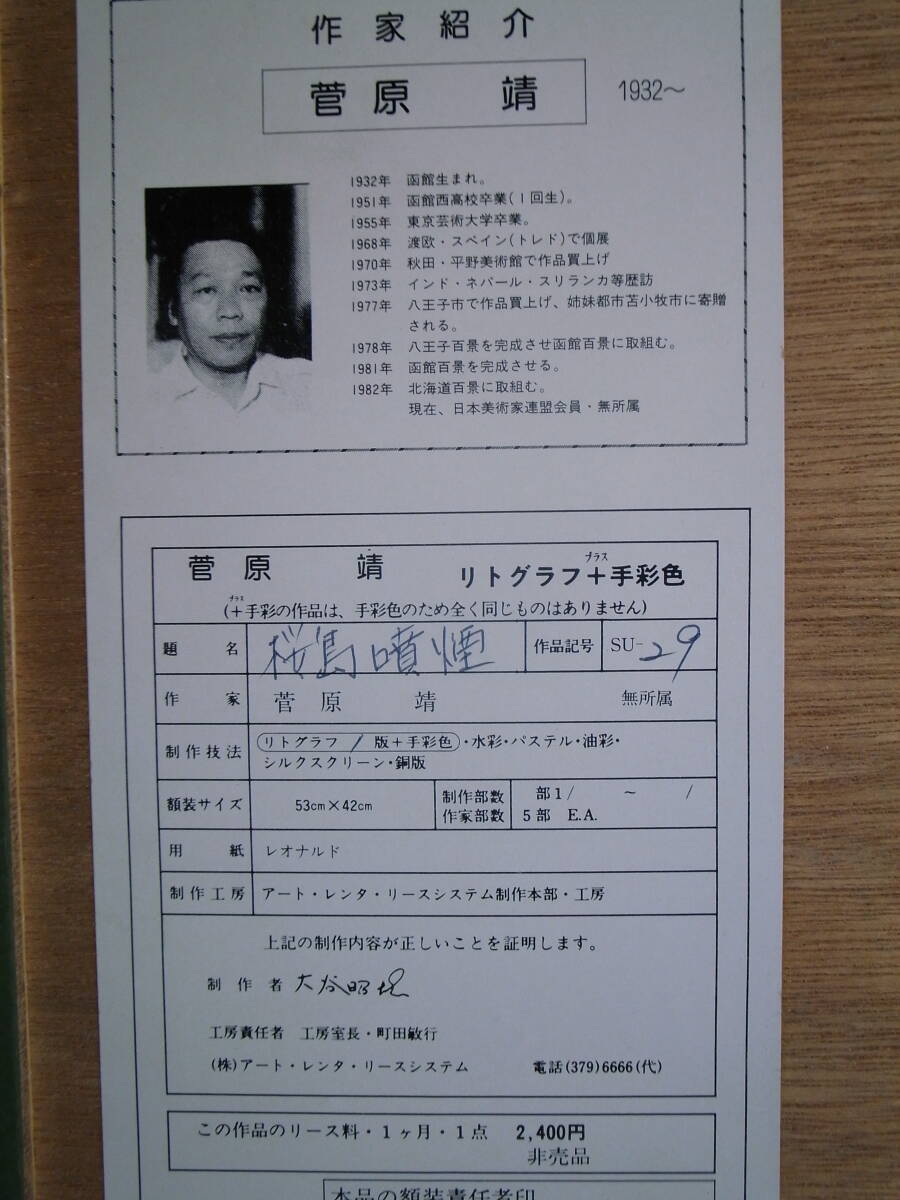 作家紹介
菅原 靖 1932～
1932年 函館生まれ。
1951年 函館西高校卒業(1回生)。
1955年 東京芸術大学卒業。
1968年 渡欧・スペイン(トレド)で個展
1970年 秋田・平野美術館で作品買上げ
1973年 インド・ネパール・スリランカ等歴訪
1977年 八王子市で作品買上げ、姉妹都市苫小牧市に寄贈
される。
1978年 八王子百景を完成させ函館百景に取組む。
1981年 函館百景を完成させる。
1982年 北海道百景に取組む。
現在、日本美術家連盟会員・無所属
プラス
菅原 靖 リトグラフ+手彩色
プラス
(+手彩の作品は、手彩色のため全く同じものはありません)
題名 桜島噴煙 作品記号 SU-29
作家 菅原 靖 無所属
制作技法 リトグラフ / 版+手彩色・水彩・パステル・油彩・
シルクスクリーン・銅版
額装サイズ 53cm×42cm 制作部数 部1/ ～ /
作家部数 5部 E.A.
用紙 レオナルド
制作工房 アート・レンタ・リースシステム制作本部・工房
上記の制作内容が正しいことを証明します。
制作者 大谷昭
工房責任者 工房室長・町田敏行
(株)アート・レンタ・リースシステム 電話(379)6666(代)
この作品のリース料・1ヶ月・1点 2,400円
非売品
本品の額装責任者印